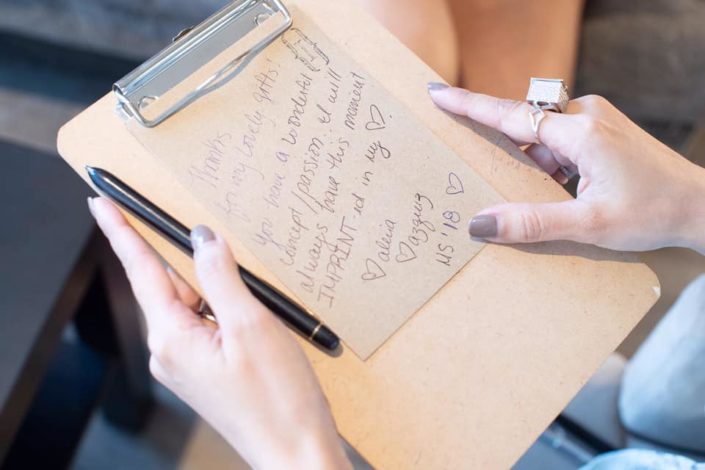 Thanks
for my lovely gifts!
You have a wonderful
concept/passion. I will
always have this moment
IMPRINT-ed in my ♡
♡ alena
♡ azzguy ♡
NS '18